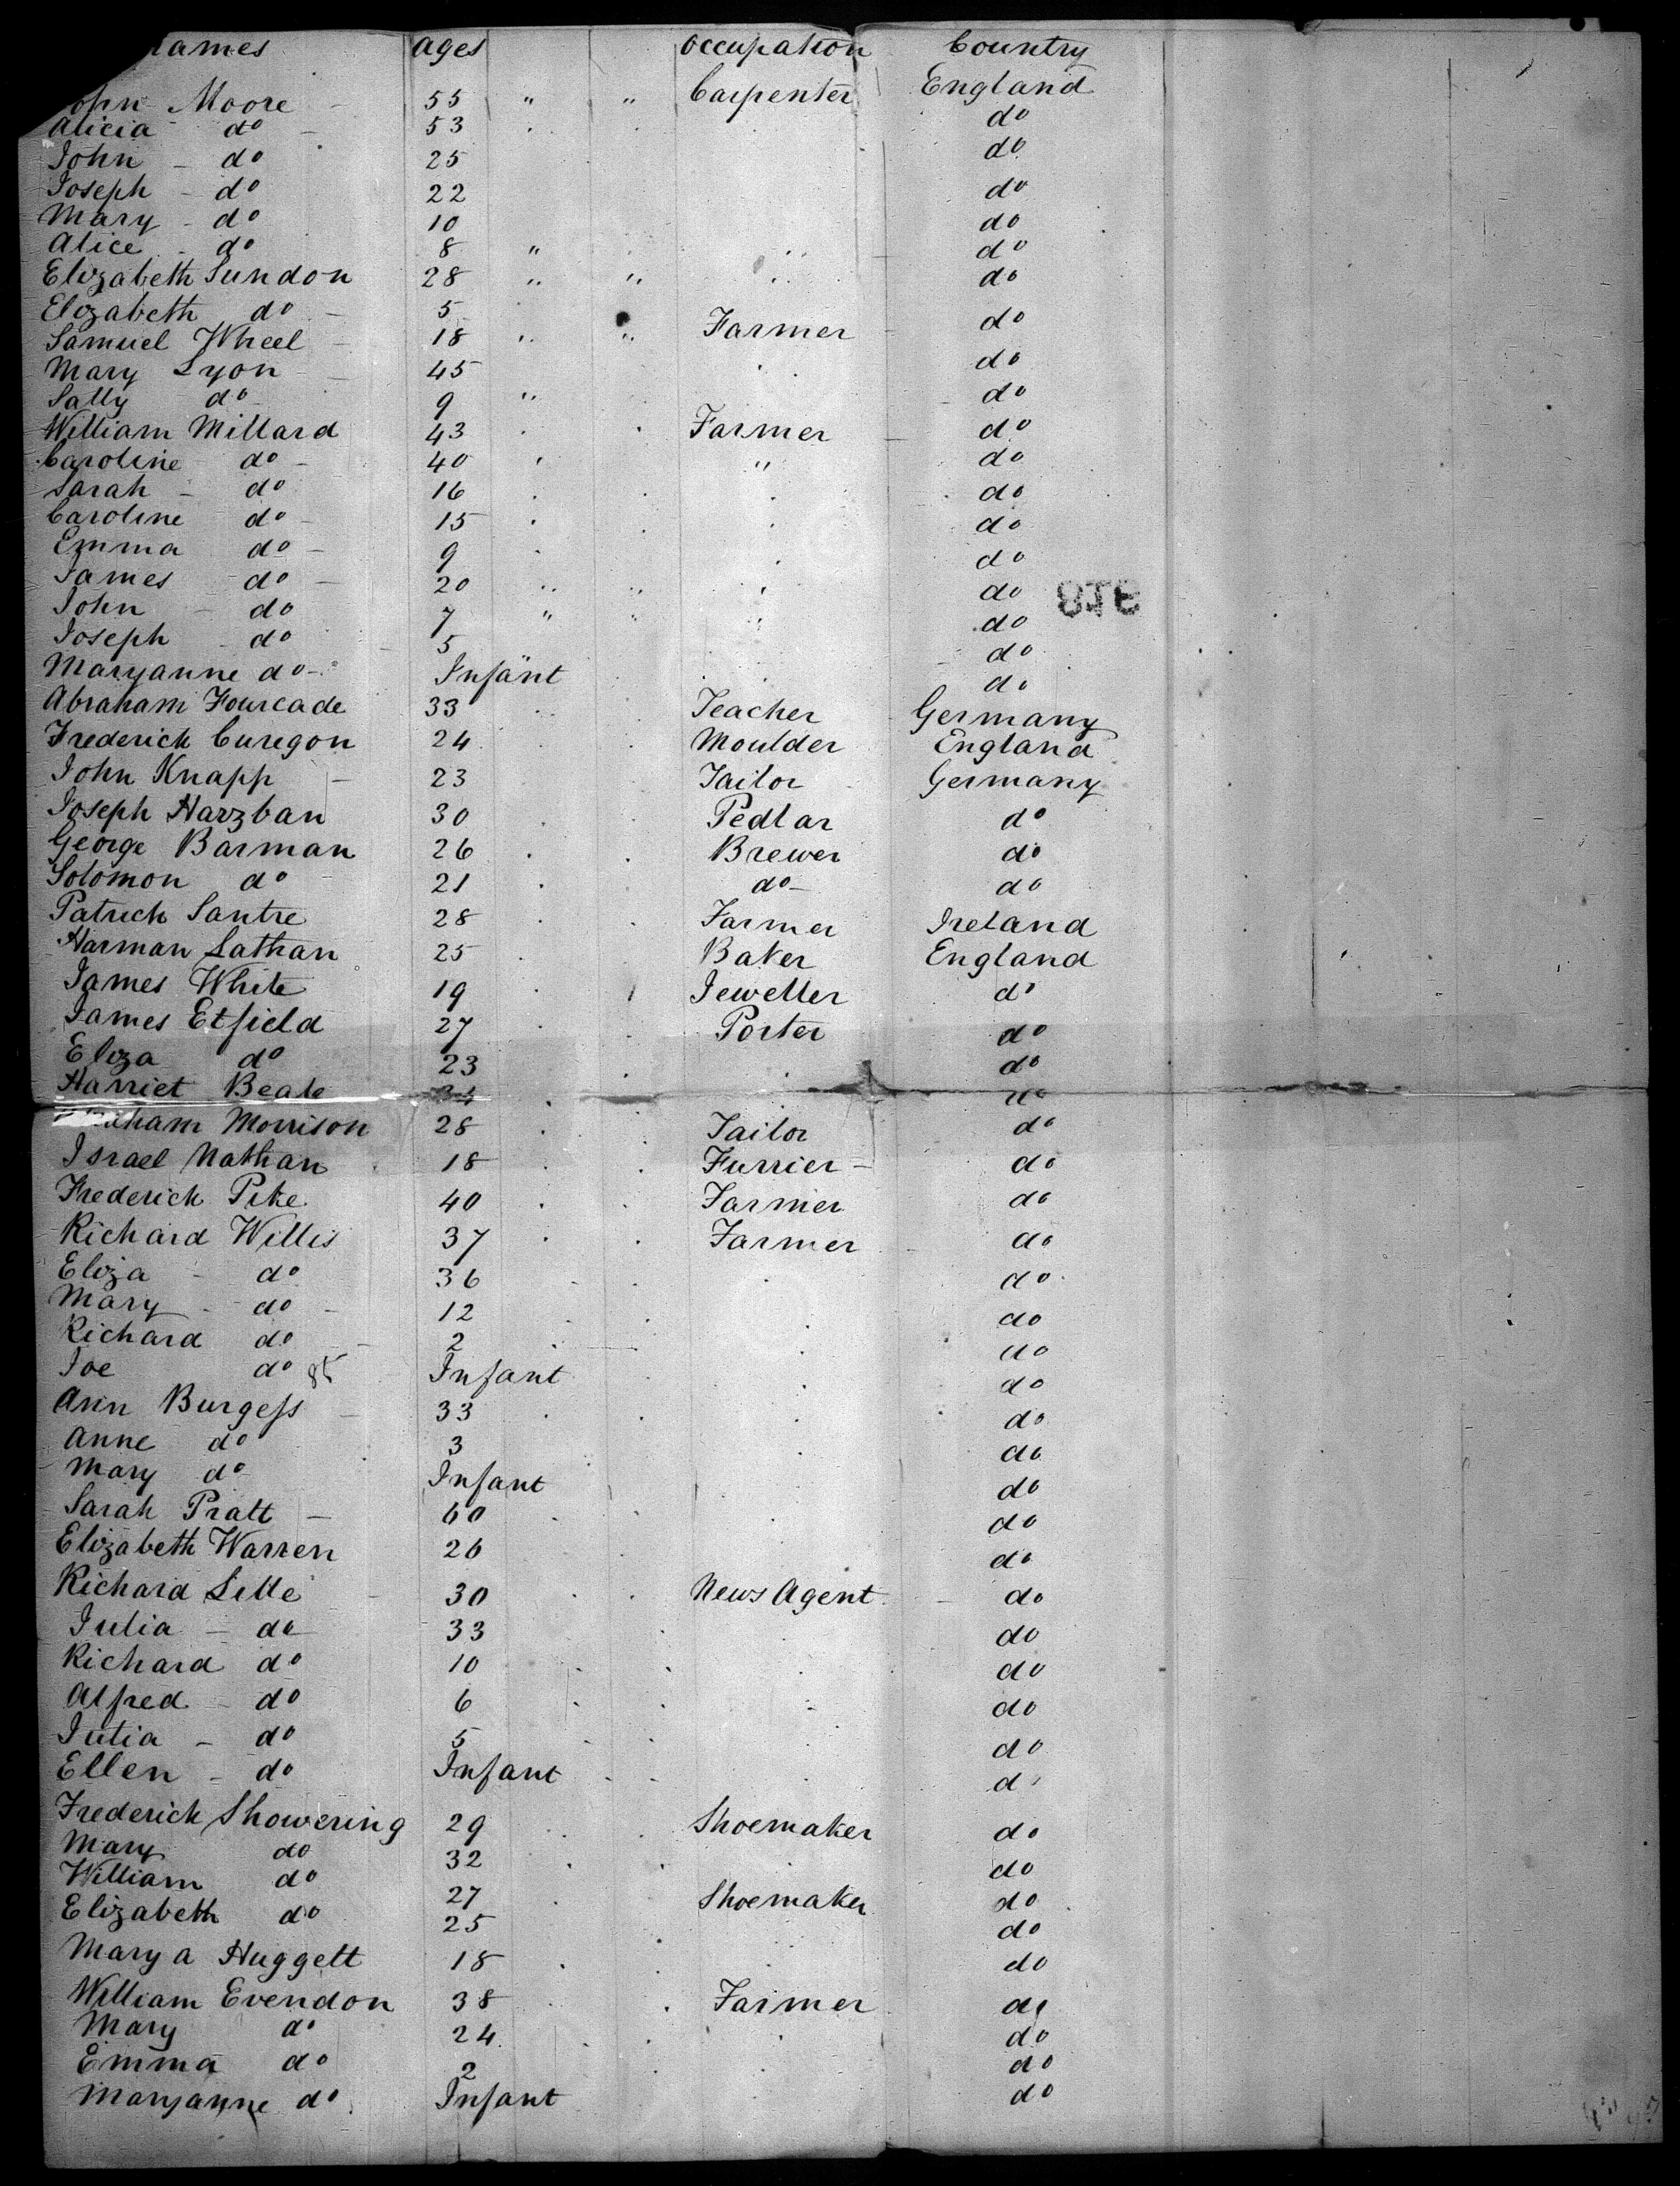 ames ages occupation Country
ohn Moore 55 " " Carpenter England
Alicia do 53 do
John - do 25 do
Joseph - do 22 do
Mary - do 10 do
Alice - do 8 " do
Elizabeth Sundon 28 " " do
Elizabeth do 5
Samuel Wheel 18 " " Farmer do
Mary Lyon 45 do
Sally do 9 " do
William Millard 43 Farmer do
Caroline do - 40 " do
Sarah - do 16 do
Caroline do - 15 do
Emma do - 9 do
James do - 20 " " do
John - do 7 " " do
Joseph do 5 do
Maryanne do - Infant do
Abraham Fourcade 33 Teacher Germany
Frederick Curegon 24 Moulder England
John Knapp - 23 Tailor Germany
Joseph Harzban 30 Pedlar do
George Barman 26 Brewer do
Solomon do 21 do - do
Patrick Santre 28 Farmer Ireland
Harman Lathan 25 Baker England
James White 19 Jeweller do
James Etfield 27 Porter do
Eliza do 23 do
Harriet Beale do
aham Morrison 28 Tailor do
Israel Nathan 18 Furrier - do
Frederick Pike 40 Farmer do
Richard Willis 37 Farmer do
Eliza - do 36 do
Mary - do - 12 do
Richard do - 2 do
Joe do Infant do
Ann Burgess - 33 do
Anne do 3 do
Mary do Infant do
Sarah Pratt - 60 do
Elizabeth Warren 26 do
Richard Lille - 30 News Agent do
Julia - do 33 do
Richard do 10 do
Alfred - do 6 do
Julia - do 5 do
Ellen - do Infant do
Frederick Showering 29 Shoemaker do
Mary do 32 do
William do 27 Shoemaker do
Elizabeth do 25 do
Mary a Huggett 18 do
William Evendon 38 Farmer do
Mary do 24 do
Emma do 2 do
Maryanne do Infant do